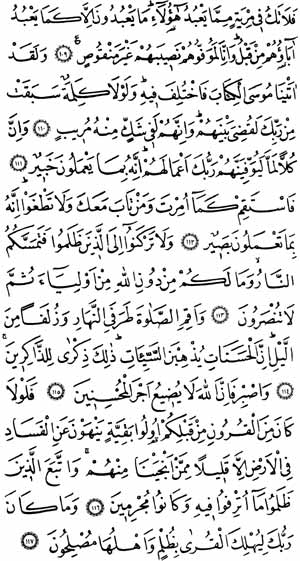 فَلَا تَكُ فِي مِرْيَةٍ مِمَّا يَعْبُدُ هَٰؤُلَاءِ مَا يَعْبُدُونَ إِلَّا كَمَا يَعْبُدُ
آبَاؤُهُمْ مِنْ قَبْلُ وَإِنَّا لَمُوَفُّوهُمْ نَصِيبَهُمْ غَيْرَ مَنْقُوصٍ ﴿١٠٩﴾ وَلَقَدْ
آتَيْنَا مُوسَى الْكِتَابَ فَاخْتُلِفَ فِيهِ وَلَوْلَا كَلِمَةٌ سَبَقَتْ
مِنْ رَبِّكَ لَقُضِيَ بَيْنَهُمْ وَإِنَّهُمْ لَفِي شَكٍّ مِنْهُ مُرِيبٍ ﴿١١٠﴾ وَإِنَّ
كُلًّا لَمَّا لَيُوَفِّيَنَّهُمْ رَبُّكَ أَعْمَالَهُمْ إِنَّهُ بِمَا يَعْمَلُونَ خَبِيرٌ ﴿١١١﴾
فَاسْتَقِمْ كَمَا أُمِرْتَ وَمَنْ تَابَ مَعَكَ وَلَا تَطْغَوْا إِنَّهُ
بِمَا تَعْمَلُونَ بَصِيرٌ ﴿١١٢﴾ وَلَا تَرْكَنُوا إِلَى الَّذِينَ ظَلَمُوا فَتَمَسَّكُمُ
النَّارُ وَمَا لَكُمْ مِنْ دُونِ اللَّهِ مِنْ أَوْلِيَاءَ ثُمَّ
لَا تُنْصَرُونَ ﴿١١٣﴾ وَأَقِمِ الصَّلَاةَ طَرَفَيِ النَّهَارِ وَزُلَفًا مِنَ
اللَّيْلِ إِنَّ الْحَسَنَاتِ يُذْهِبْنَ السَّيِّئَاتِ ذَٰلِكَ ذِكْرَىٰ لِلذَّاكِرِينَ
﴿١١٤﴾ وَاصْبِرْ فَإِنَّ اللَّهَ لَا يُضِيعُ أَجْرَ الْمُحْسِنِينَ ﴿١١٥﴾ فَلَوْلَا
كَانَ مِنَ الْقُرُونِ مِنْ قَبْلِكُمْ أُولُو بَقِيَّةٍ يَنْهَوْنَ عَنِ الْفَسَادِ
فِي الْأَرْضِ إِلَّا قَلِيلًا مِمَّنْ أَنْجَيْنَا مِنْهُمْ وَاتَّبَعَ الَّذِينَ
ظَلَمُوا مَا أُتْرِفُوا فِيهِ وَكَانُوا مُجْرِمِينَ ﴿١١٦﴾ وَمَا كَانَ
رَبُّكَ لِيُهْلِكَ الْقُرَىٰ بِظُلْمٍ وَأَهْلُهَا مُصْلِحُونَ ﴿١١٧﴾